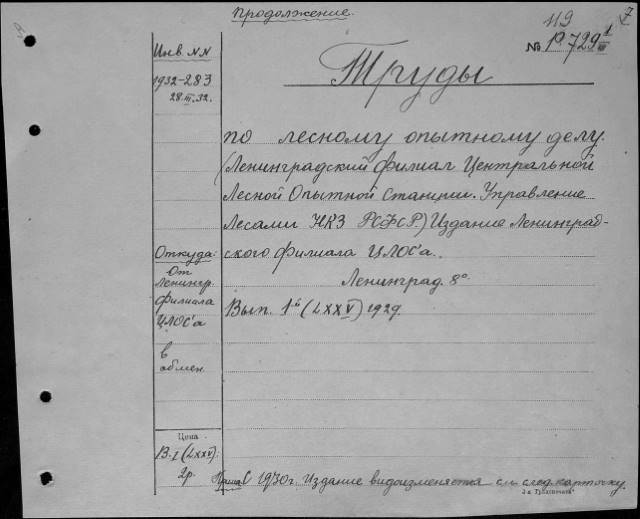 Продолжение.
119
№ 1º 729 1/III
Инв. NN
1932-283
28.III.32.
Труды
по лесному опытному делу.
(Ленинградский филиал Центральной
Лесной Опытной Станции. Управление
Лесами НКЗ РСФСР.) Издание Ленинград-
ского филиала ЦЛОС'а.
Ленинград. 8º
Вып. 1й (LXXV) 1929.
Откуда:
От
Ленингр.
Филиала
ЦЛОС'а
в
обмен
Цена
В. I (LXXV):
2р.
С 1930 г. Издание видоизменяется см. след. карточку.